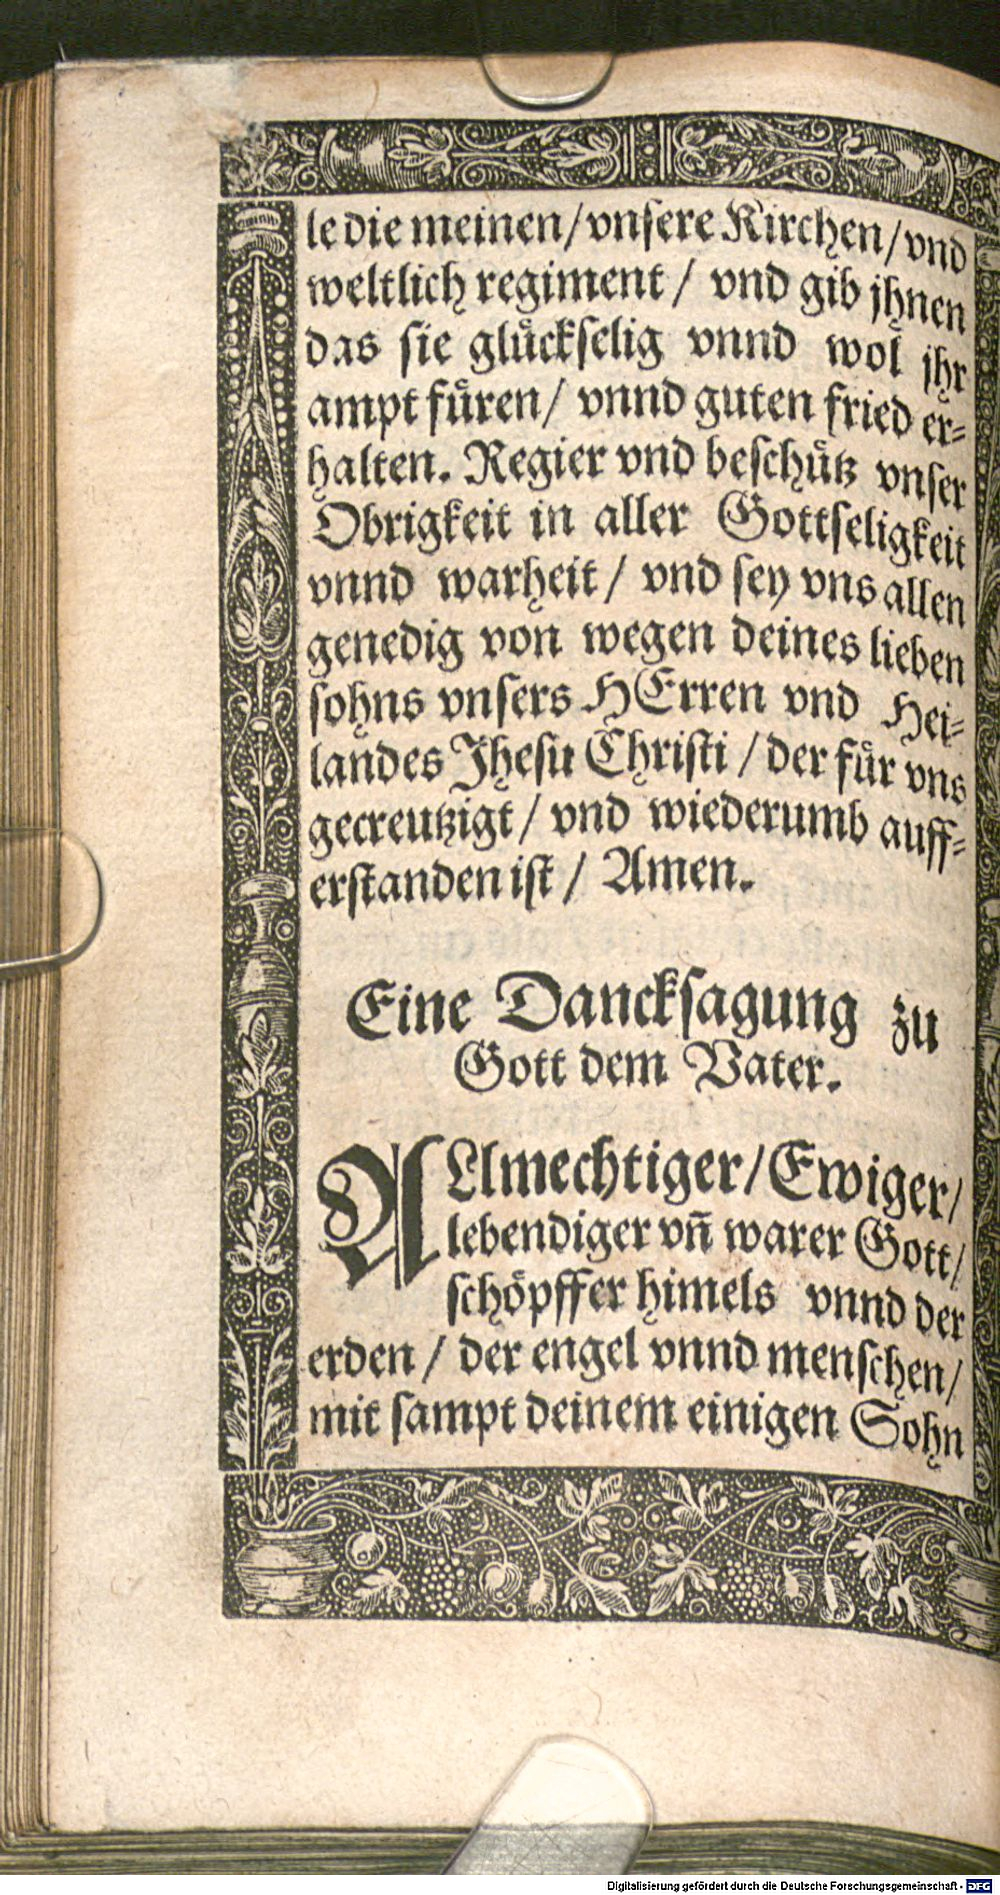 le die meinen/ vnsere Kirchen/ vnd
weltlich regiment / vnd gib jhnen
das sie glückselig vnnd wol jhr
ampt füren/ vnnd guten fried er-
halten. Regier vnd beschütz vnser
Obrigkeit in aller Gottseligkeit
vnnd warheit / vnd sey vns allen
genedig von wegen deines lieben
sohns vnsers HErren vnd Hei-
landes Jhesu Christi / der für vns
gecreutzigt / vnd wiederumb auff-
erstanden ist / Amen.
Eine Dancksagung zu
Gott dem Vater.
ALlmechtiger/ Ewiger/
lebendiger vñ warer Gott/
schöpffer himels vnnd der
erden / der engel vnnd menschen/
mit sampt deinem einigen Sohn
Digitalisierung gefördert durch die Deutsche Forschungsgemeinschaft - DFG